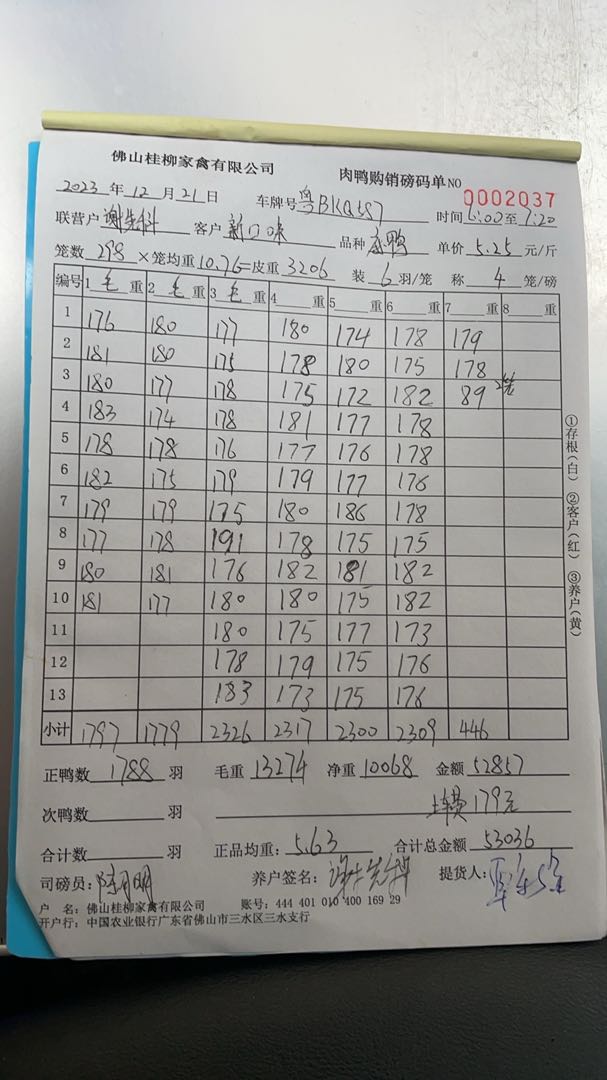 佛山桂柳家禽有限公司 肉鸭购销磅码单 NO 0002037
2023 年 12 月 21 日 车牌号 粤BKQ557 时间 6:00 至 7:20
联营户 谢先科 客户 新口味 品种 单价 5.25 元/斤
笼数 298 ×笼均重 10.76 =皮重 3206 装 6 羽/笼 称 4 笼/磅
编号 1 毛 重 2 毛 重 3 毛 重 4 重 5 重 6 重 7 重 8 重
1 176 180 177 180 174 178 179
2 181 180 175 178 180 175 178
3 180 177 178 175 172 182 89 2笼
4 183 174 178 181 177 178
5 178 178 176 177 176 178
6 182 175 179 179 177 176
7 179 179 175 180 186 178
8 177 178 191 178 175 175
9 180 181 176 182 181 182
10 181 177 180 180 175 182
11 180 175 177 173
12 178 179 175 176
13 183 173 175 176
小计 1797 1779 2326 2317 2300 2309 446
正鸭数 1788 羽 毛重 13274 净重 10068 金额 52857
次鸭数 羽 上车费 179元
合计数 羽 正品均重: 5.63 合计总金额 53036
司磅员: 养户签名: 谢先科 提货人:
户 名: 佛山桂柳家禽有限公司 账号: 444 401 010 400 169 29
开户行: 中国农业银行广东省佛山市三水区三水支行
①存根(白) ②客户(红) ③养户(黄)